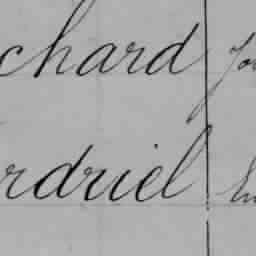 chard
rdriel